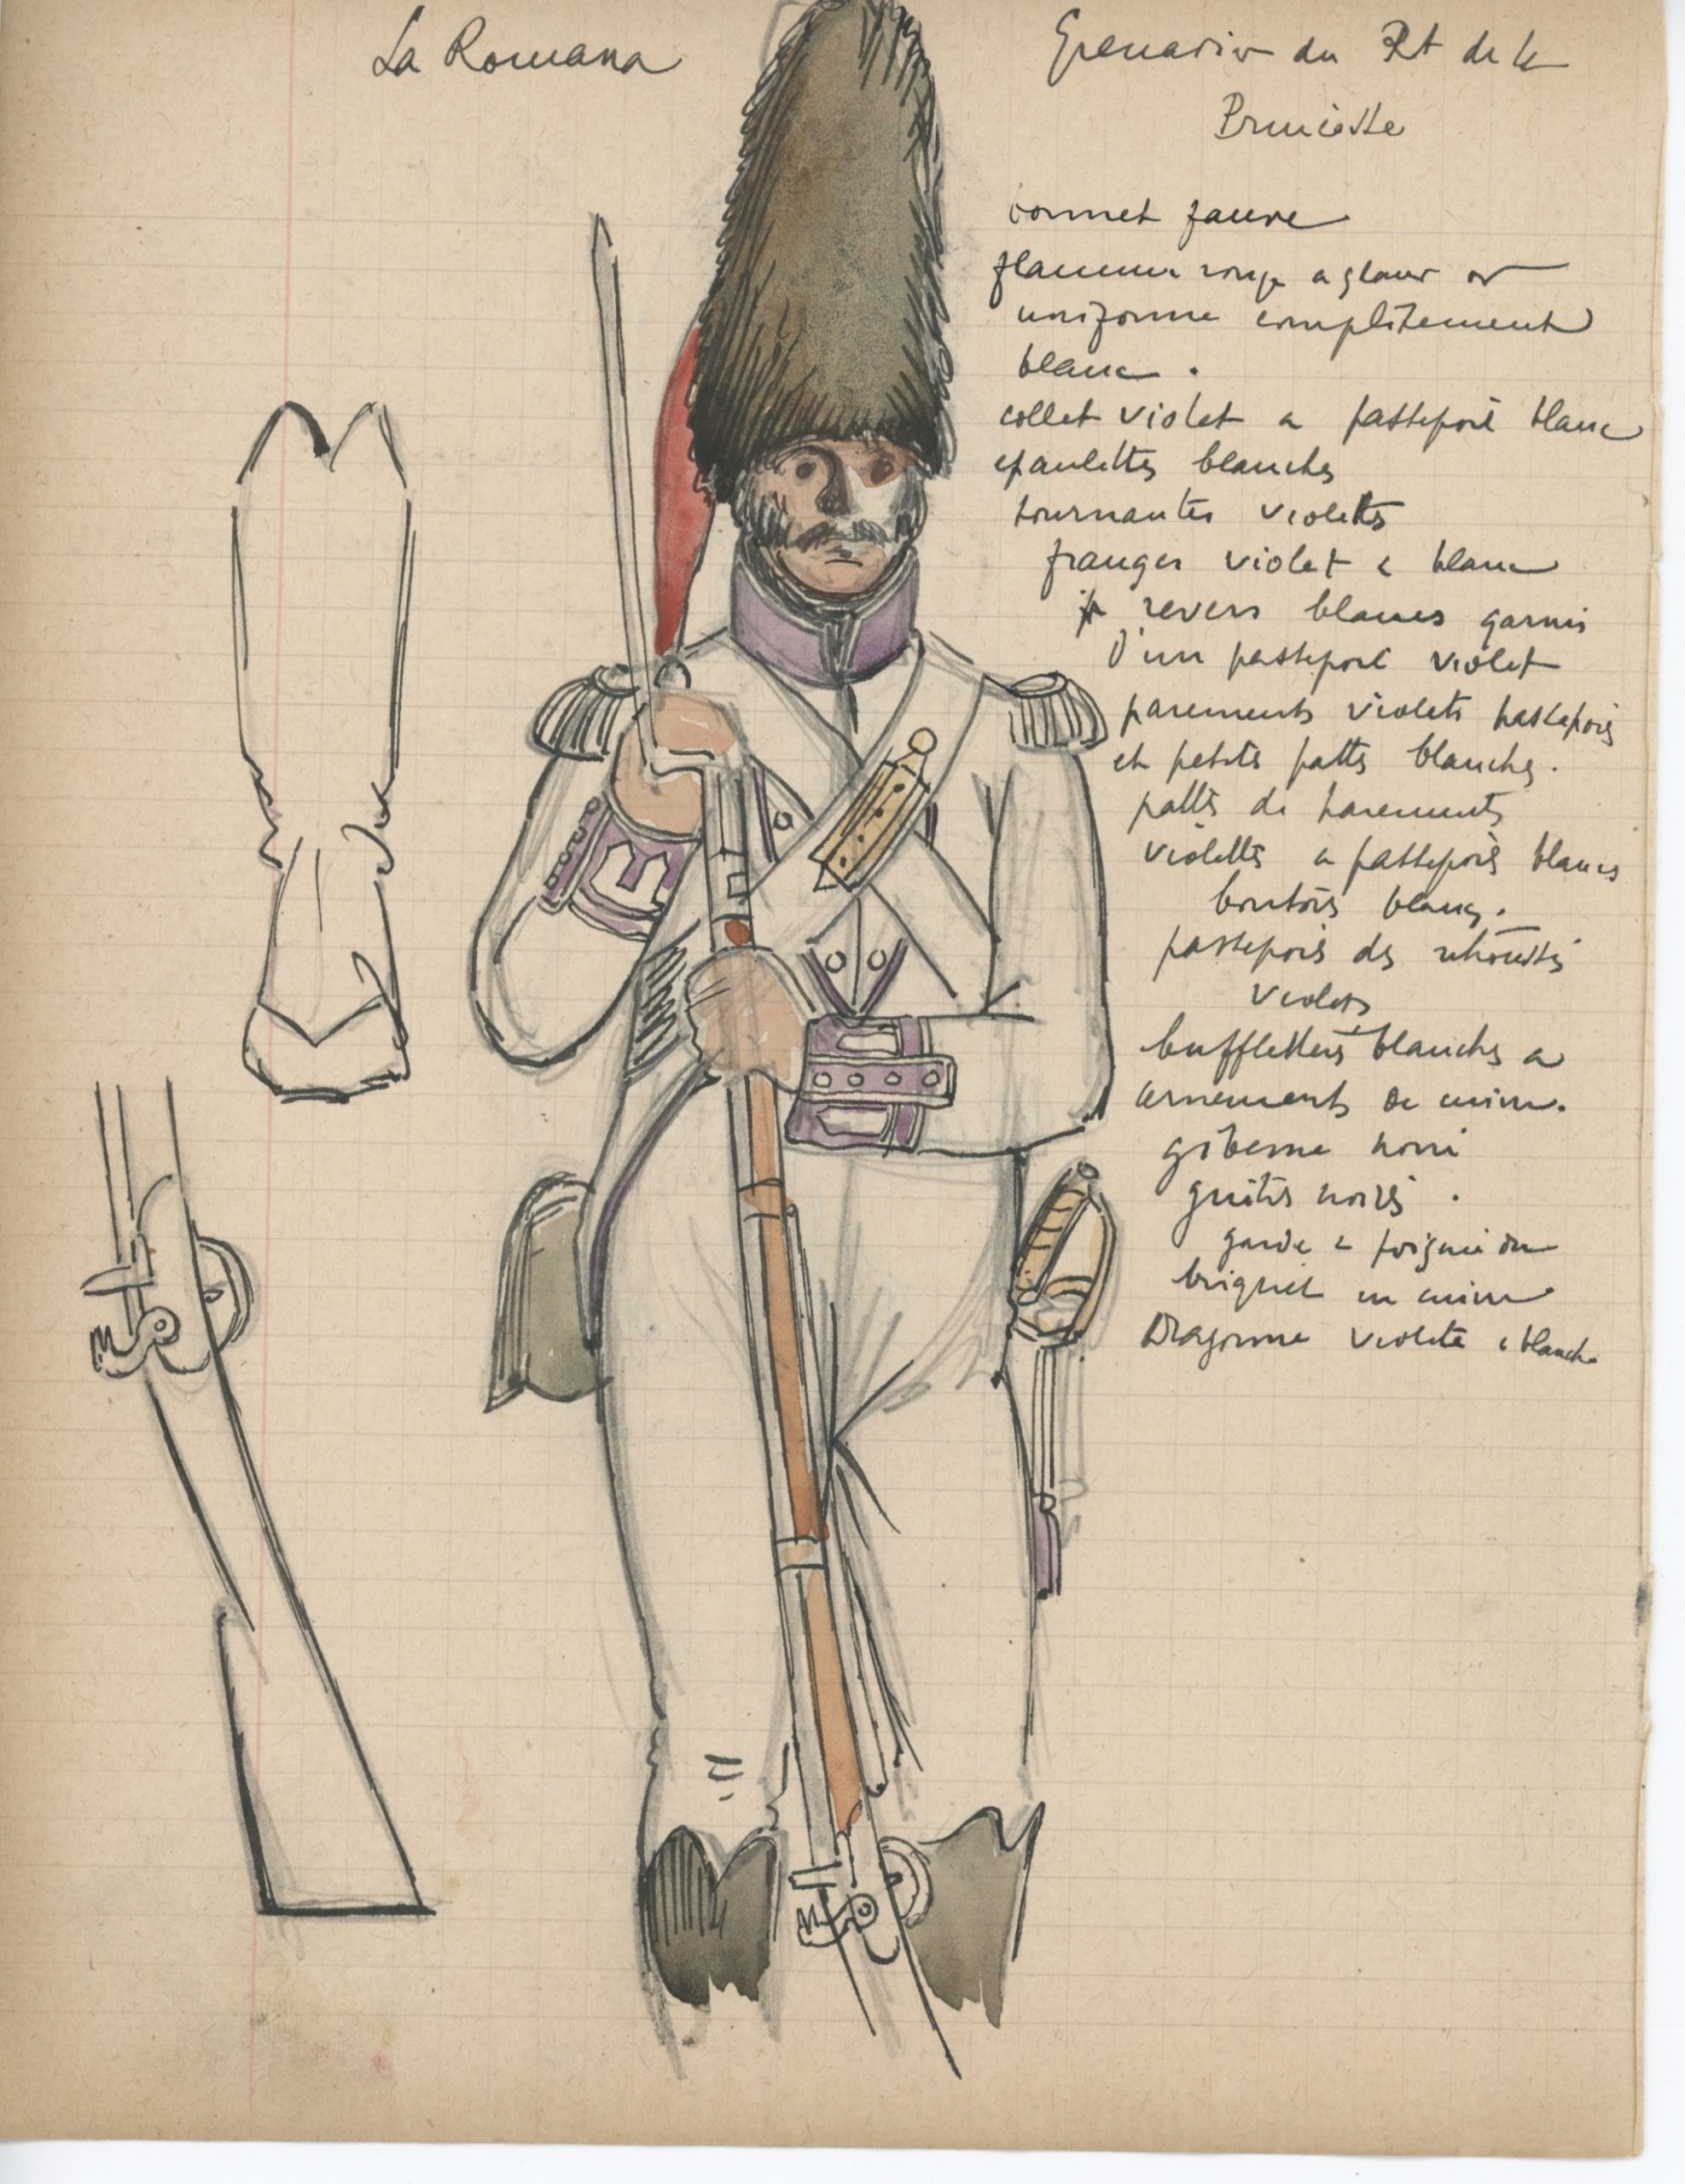 La Romana
Grenadier du Rt de la
Princesse
bonnet fauve
flamme rouge a gland or
uniforme complètement
blanc.
collet violet a passepoil blanc
epaulettes blanches
tournantes violettes
franges violet & blanc
revers blancs garnis
d'un passepoil violet
parements violets passepois
et petites pattes blanches.
pattes de parements
violettes a passepois blancs
boutons blancs.
passepois des retroussis
violets
buffleteries blanches a
ornements de cuivre.
giberne noire
guêtres noires.
garde & poignée du
briquet en cuivre
Dragonne violette & blanche